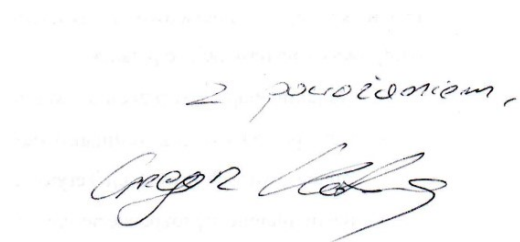 Z poważaniem,
Gregor